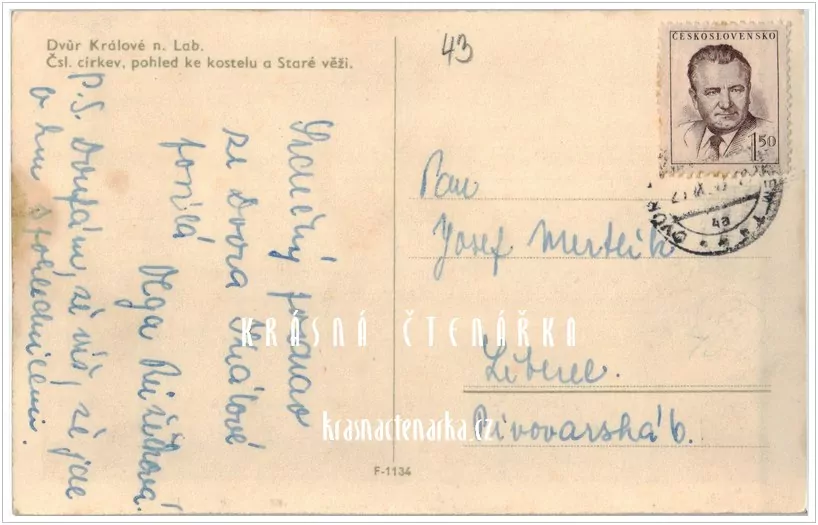 Dvůr Králové n. Lab.
Čsl. církev, pohled ke kostelu a Staré věži.
43
ČESKOSLOVENSKO
1.50
DVŮR
4a
Srdečný pozdrav
ze Dvora Králové
posílá
Olga Růžičková.
P.S. Doufám, že víš, že jde
o tu pohlednici.
Pan
Josef Mertlík
Liberec.
Pivovarská 6.
KRÁSNÁ ČTENÁŘKA
krasnactenarka.cz
F-1134